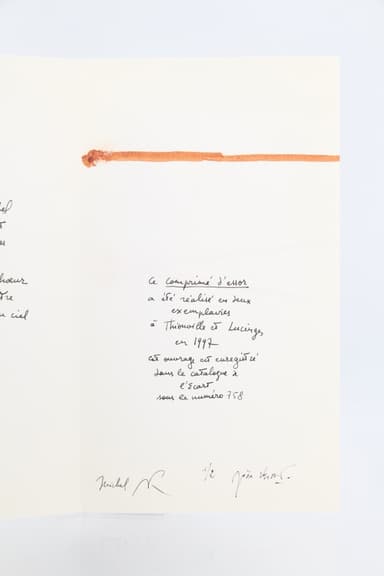 ce comprimé d'essor
a été réalisé en deux
exemplaires
à Thionville et Lucinges
en 1997
cet ouvrage est enregistré
dans le catalogue à
l'Écart
sous le numéro 758
Michel
1/2
un ciel